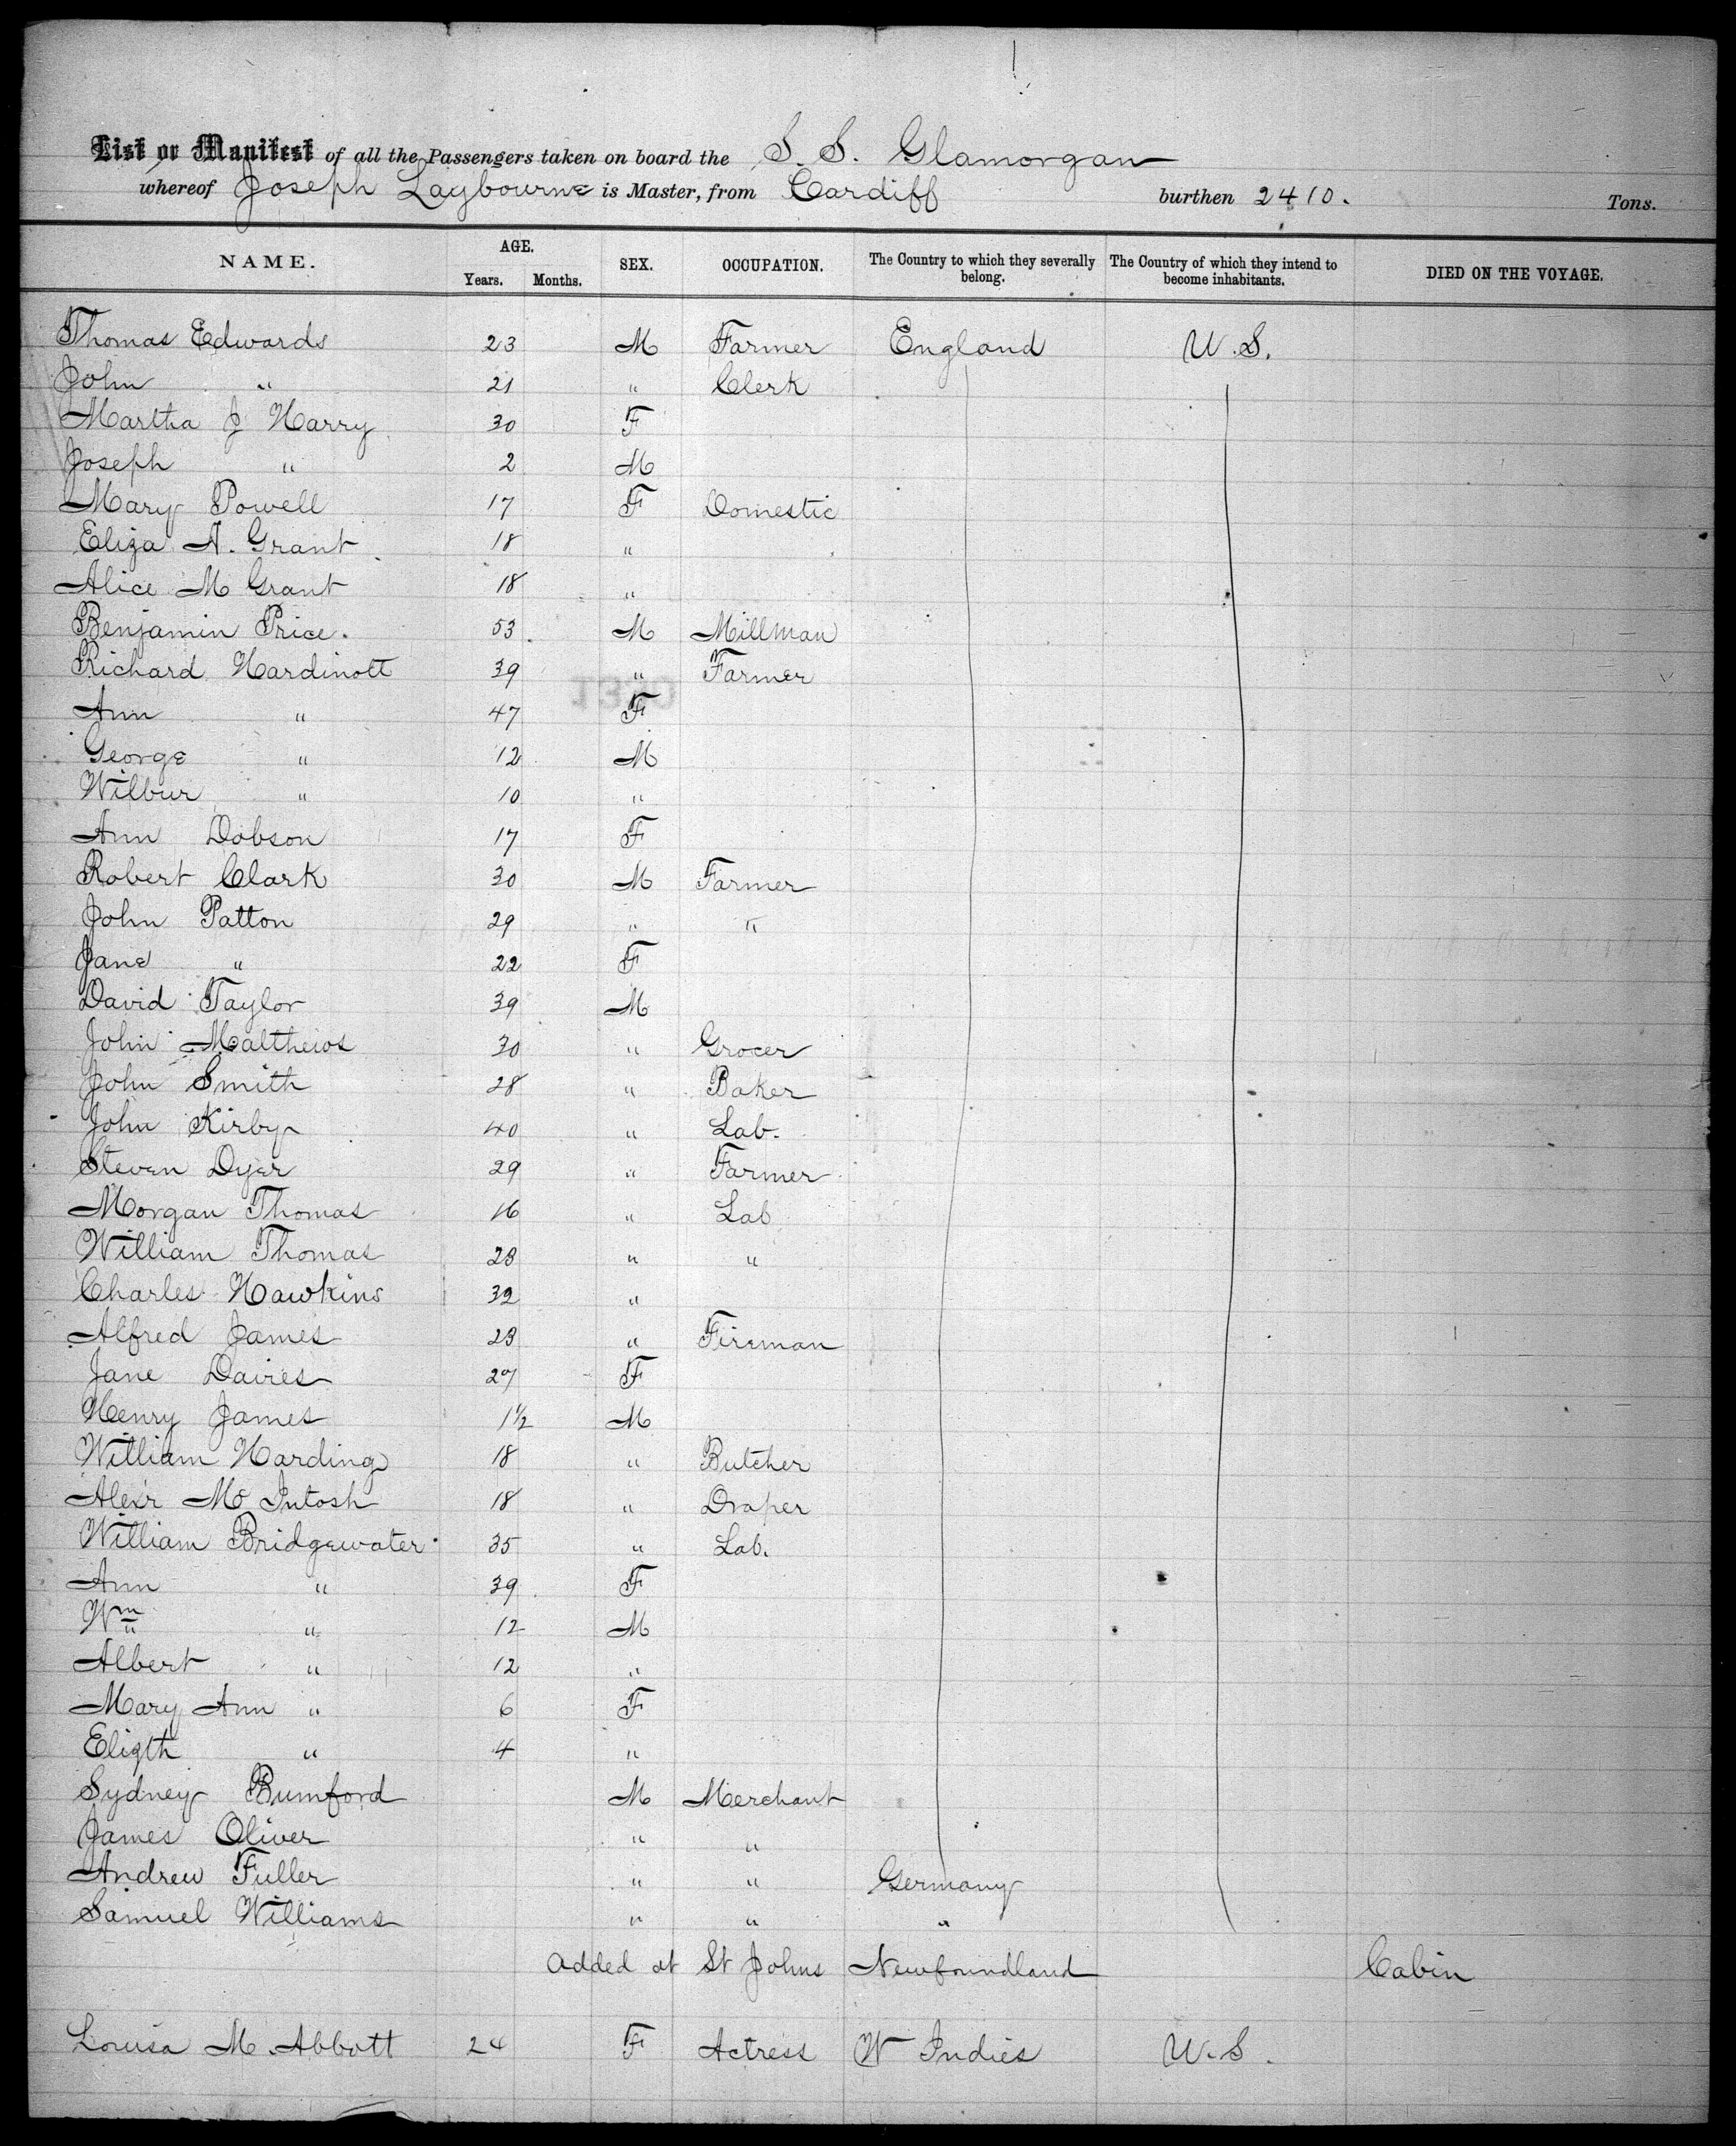 List or Manifest of all the Passengers taken on board the S. S. Glamorgan
whereof Joseph Laybourne is Master, from Cardiff burthen 2410. Tons.
NAME. AGE. Years. Months. SEX. OCCUPATION. The Country to which they severally belong. The Country of which they intend to become inhabitants. DIED ON THE VOYAGE.
Thomas Edwards 23 M Farmer England U.S.
John " 21 " Clerk
Martha J Harry 30 F
Joseph " 2 M
Mary Powell 17 F Domestic
Eliza A. Grant 18 "
Alice M Grant 18 "
Benjamin Price. 53 M Millman
Richard Hardinott 39 " Farmer
Ann " 47 F
George " 12 M
Wilbur " 10 "
Ann Dobson 17 F
Robert Clark 30 M Farmer
John Patton 29 " "
Jane " 22 F
David Taylor 39 M
John Matthews 30 " Grocer
John Smith 28 " Baker
John Kirby 40 " Lab.
Steven Dyer 29 " Farmer
Morgan Thomas 16 " Lab
William Thomas 23 " "
Charles Hawkins 32 "
Alfred James 23 " Fireman
Jane Davies 27 F
Henry James 1½ M
William Harding 18 " Butcher
Alexr Mc Intosh 18 " Draper
William Bridgewater 35 " Lab.
Ann " 39 F
Wm " 12 M
Albert " 12 "
Mary Ann " 6 F
Elizth " 4 "
Sydney Bumford M Merchant
James Oliver " "
Andrew Fuller " " Germany
Samuel Williams " " "
Added at St Johns Newfoundland Cabin
Louisa M. Abbott 24 F Actress W Indies U.S.